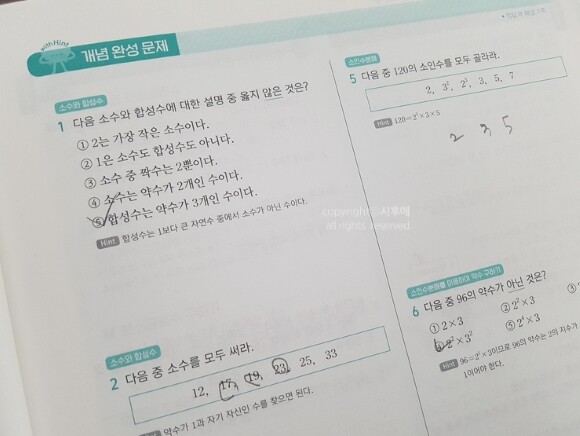 with Hint
개념 완성 문제
소수와 합성수
1 다음 소수와 합성수에 대한 설명 중 옳지 않은 것은?
① 2는 가장 작은 소수이다.
② 1은 소수도 합성수도 아니다.
③ 소수 중 짝수는 2뿐이다.
④ 소수는 약수가 2개인 수이다.
⑤ 합성수는 약수가 3개인 수이다.
Hint 합성수는 1보다 큰 자연수 중에서 소수가 아닌 수이다.
소수와 합성수
2 다음 중 소수를 모두 써라.
12, 17, 19, 23, 25, 33
약수가 1과 자기 자신인 수를 찾으면 된다.
소인수분해
5 다음 중 120의 소인수를 모두 골라라.
2, 3², 2³, 3, 5, 7
Hint 120=2³×3×5
2 3 5
copyright ⓒ시후에
all rights reserved
소인수분해를 이용하여 약수 구하기
6 다음 중 96의 약수가 아닌 것은?
① 2×3 ② 2²×3
④ 2²×3² ⑤ 2⁴×3
Hint 96=2⁵×3이므로 96의 약수는 2의 지수가
1이어야 한다.